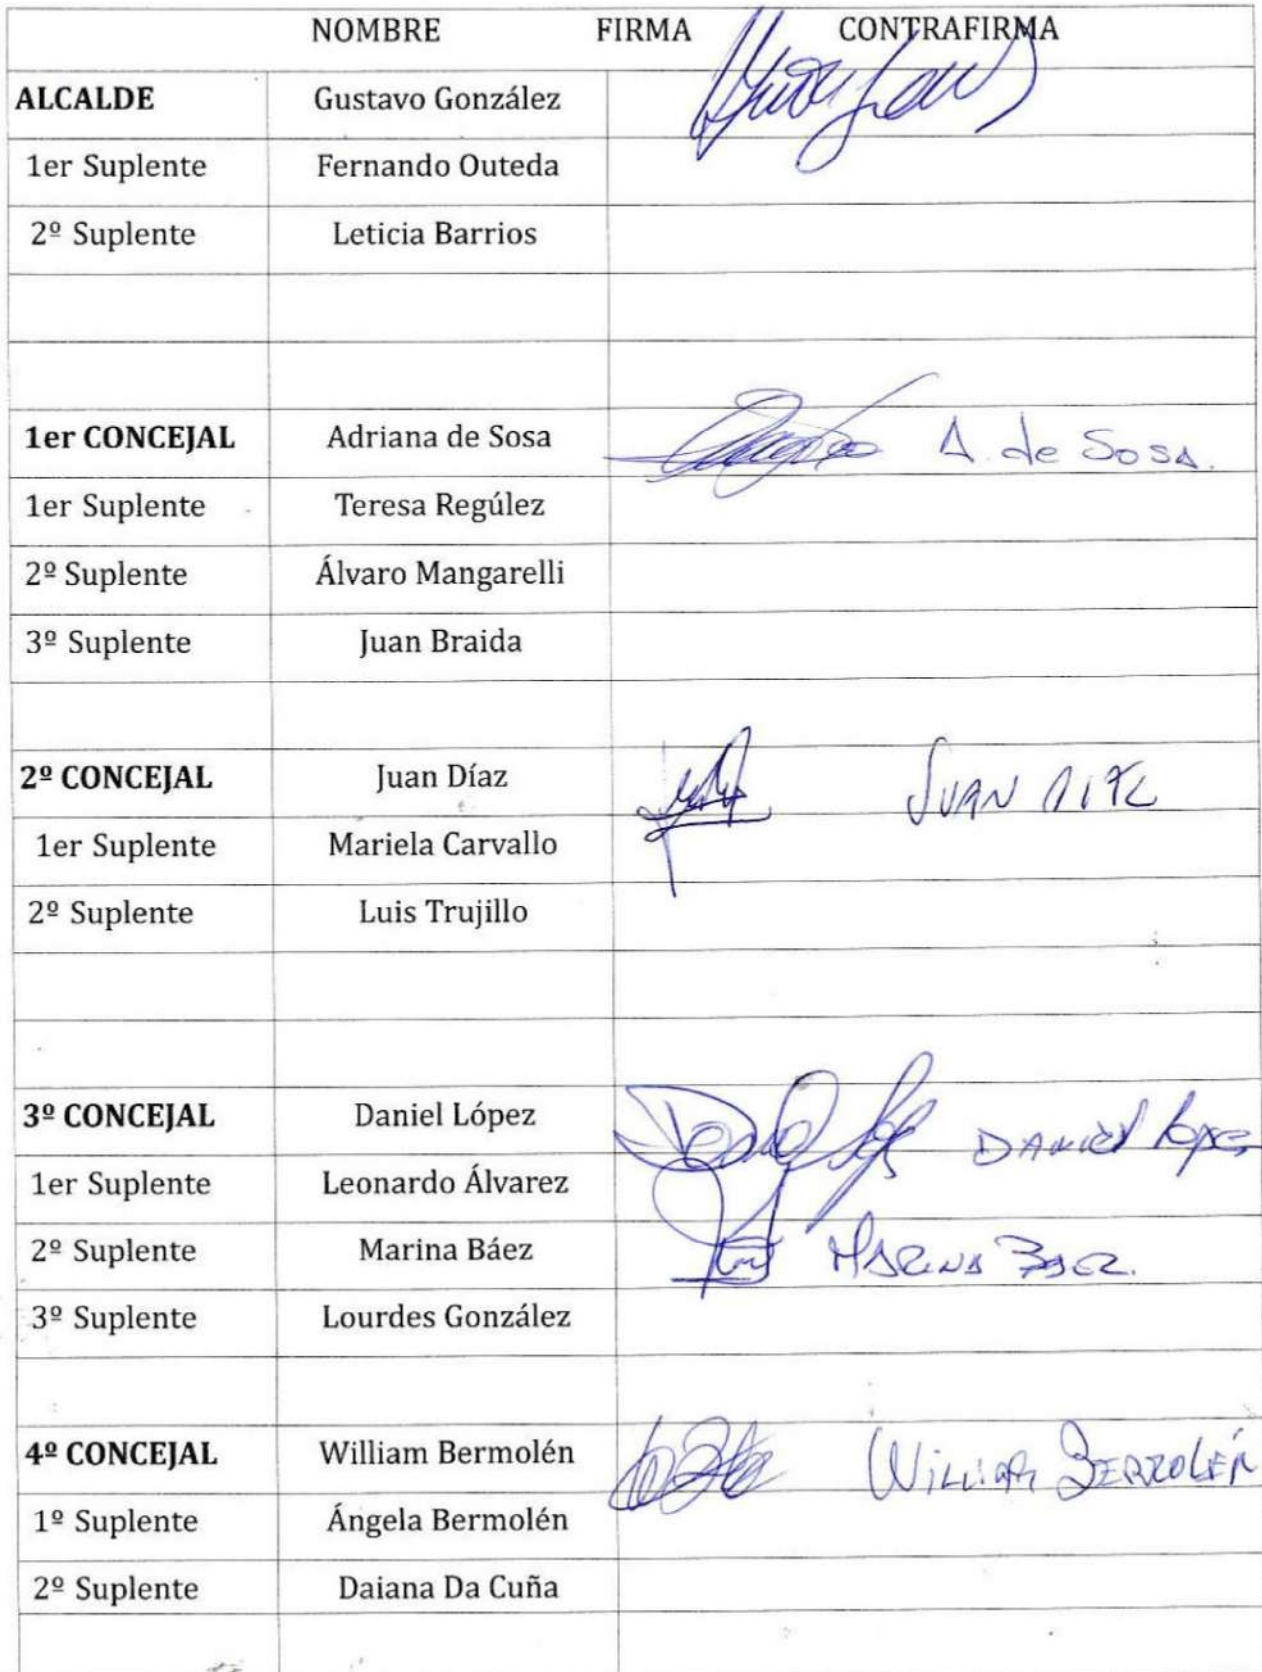 NOMBRE FIRMA CONTRAFIRMA
ALCALDE Gustavo González
1er Suplente Fernando Outeda
2º Suplente Leticia Barrios
1er CONCEJAL Adriana de Sosa A. de Sosa.
1er Suplente Teresa Regúlez
2º Suplente Álvaro Mangarelli
3º Suplente Juan Braida
2º CONCEJAL Juan Díaz JUAN DIAZ
1er Suplente Mariela Carvallo
2º Suplente Luis Trujillo
3º CONCEJAL Daniel López DANIEL Lopez
1er Suplente Leonardo Álvarez
2º Suplente Marina Báez MARINA BAEZ.
3º Suplente Lourdes González
4º CONCEJAL William Bermolén WILLIAM BERMOLÉN
1º Suplente Ángela Bermolén
2º Suplente Daiana Da Cuña